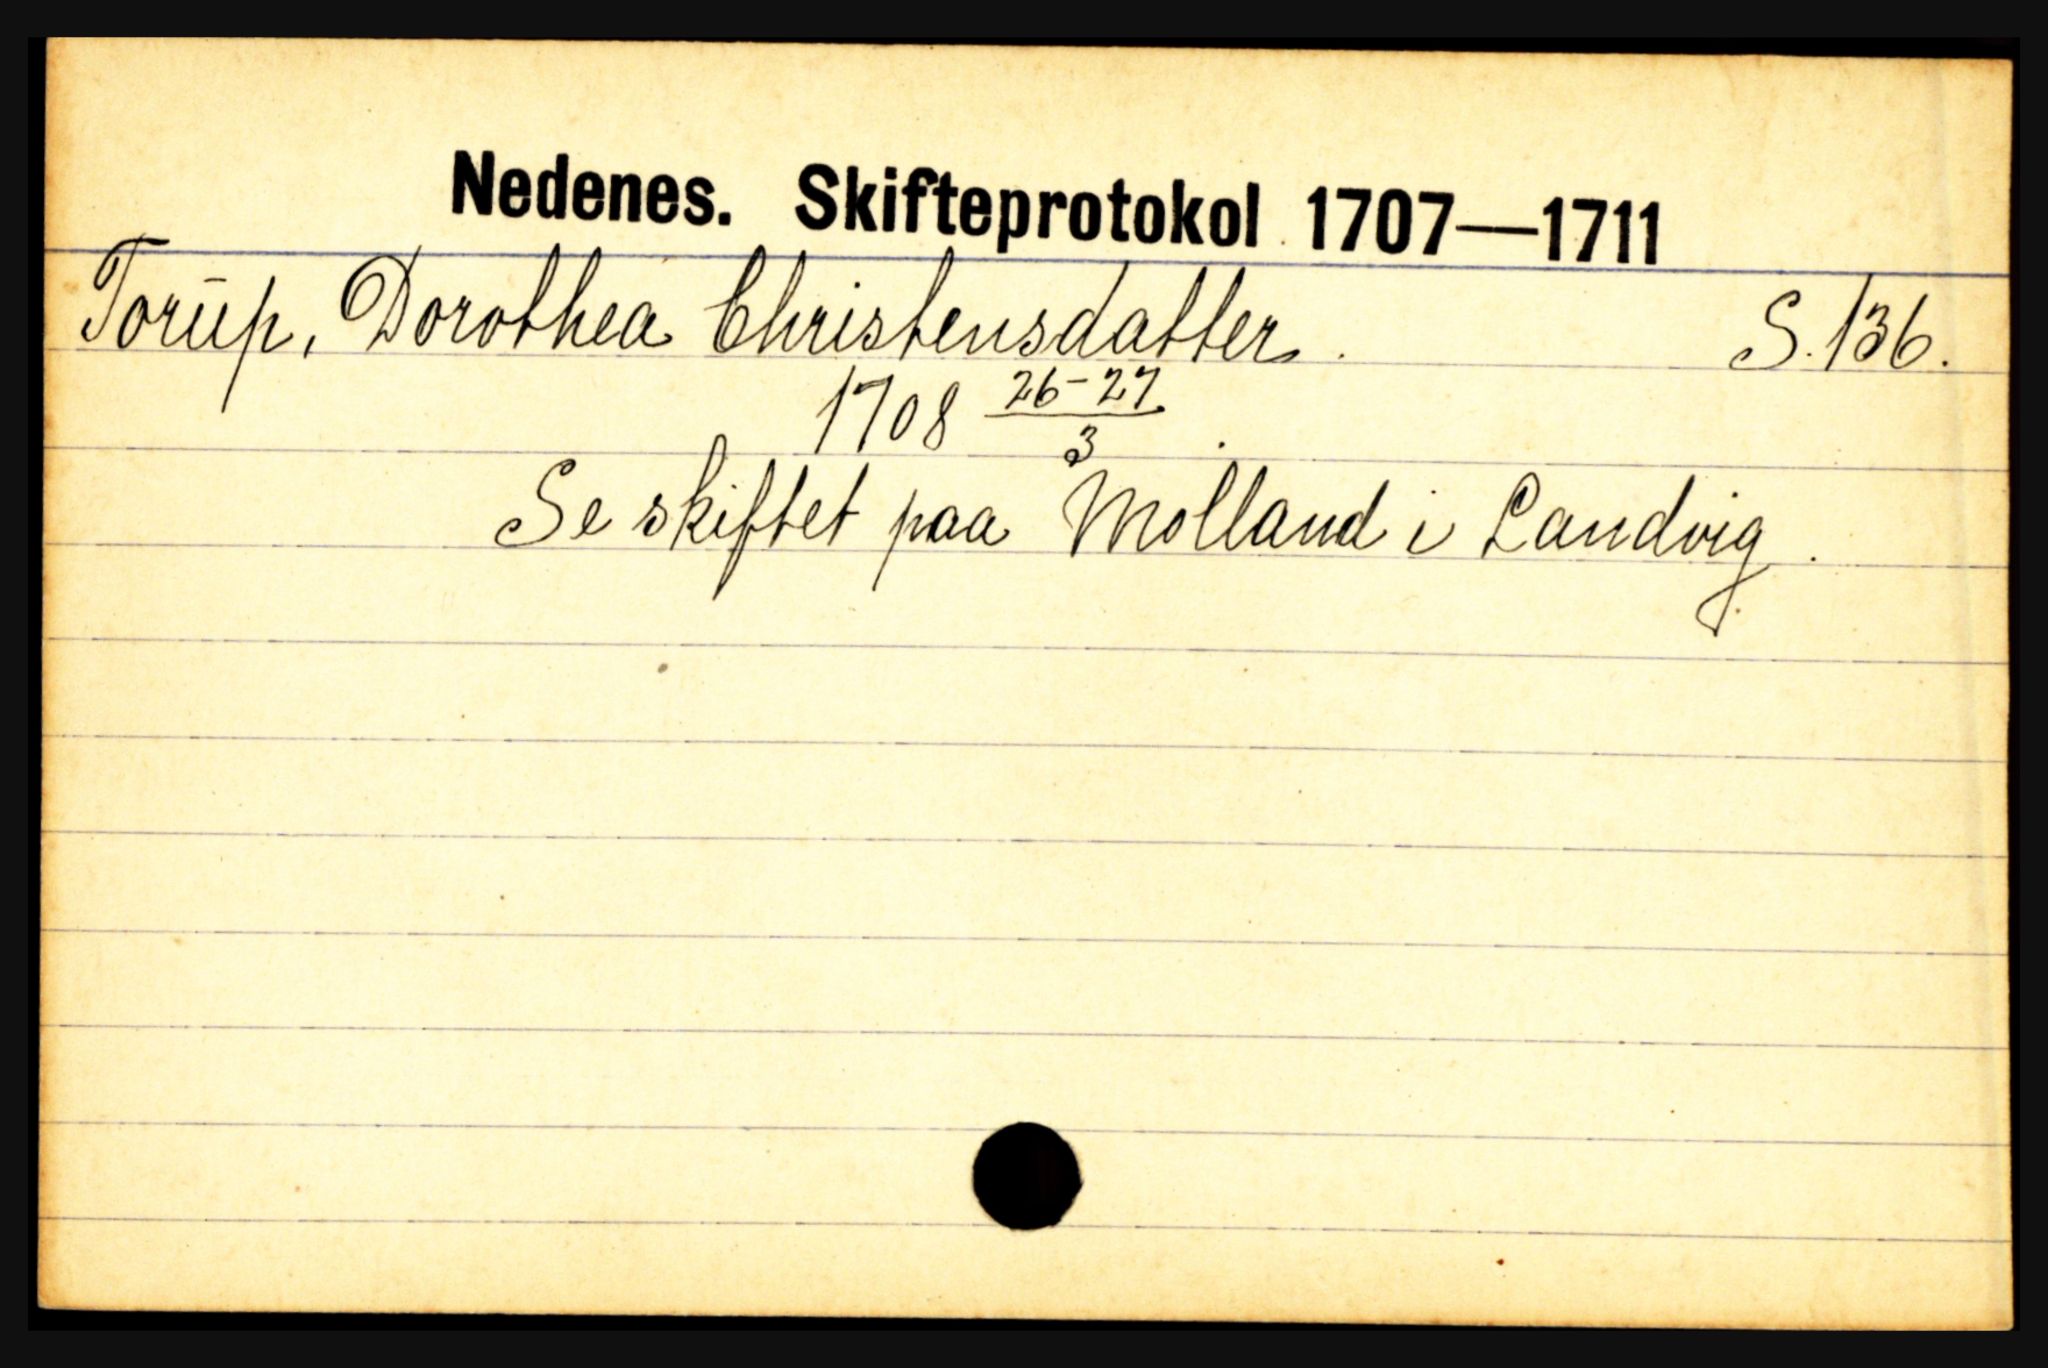 Nedenes. Skifteprotokol 1707—1711
Torup, Dorothea Christensdatter. S. 136.
1708 26-27/3.
Se skiftet paa Molland i Landvig.